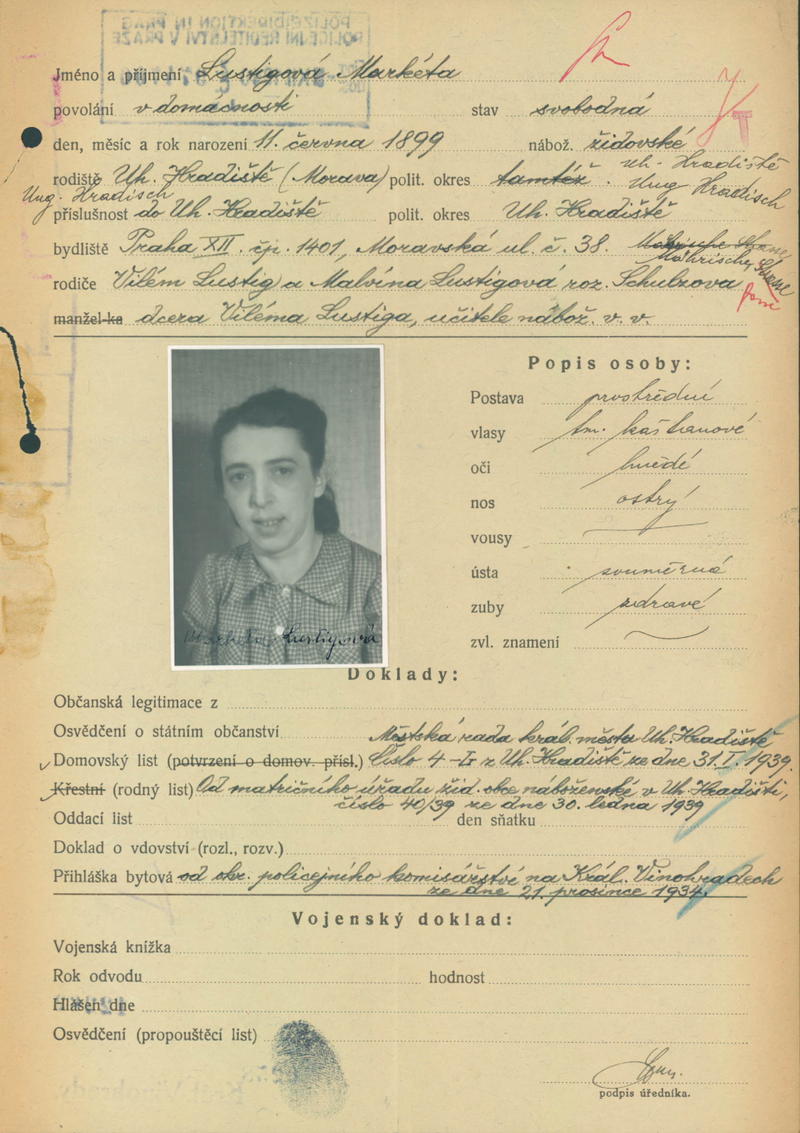 POLIZEIDIREKTION IN PRAG
POLICEJNÍ ŘEDITELSTVÍ V PRAZE
Jméno a příjmení Lustigová Markéta
povolání v domácnosti stav svobodná
den, měsíc a rok narození 11. června 1899 nábož. židovské
rodiště Uh. Hradiště (Morava) polit. okres tamtéž. Uh. Hradiště
Ung. Hradisch Ung Hradisch
příslušnost do Uh. Hradiště polit. okres Uh. Hradiště
bydliště Praha XII. čp. 1401, Moravská ul. č. 38.
Mährische
rodiče Vilém Lustig a Malvína Lustigová roz. Schulzova
manžel-ka dcera Viléma Lustiga, učitele nábož. v. v.
Popis osoby:
Postava prostřední
vlasy tm. kaštanové
oči hnědé
nos ostrý
vousy
ústa souměrná
zuby zdravé
zvl. znamení
Markéta Lustigová
Doklady:
Občanská legitimace z
Osvědčení o státním občanství
Městská rada král. města Uh. Hradiště
Domovský list (potvrzení o domov. přísl.) Číslo 4-Iz Uh. Hradiště ze dne 31. I. 1939.
Křestní (rodný list) Od matričního úřadu žid. obce náboženské v Uh. Hradišti,
číslo 40/39 ze dne 30. ledna 1939
Oddací list den sňatku
Doklad o vdovství (rozl., rozv.)
Přihláška bytová od okr. policejního komisařství na Král. Vinohradech
ze dne 21. prosince 1934.
Vojenský doklad:
Vojenská knížka
Rok odvodu hodnost
Hlášen dne
Osvědčení (propouštěcí list)
podpis úředníka.